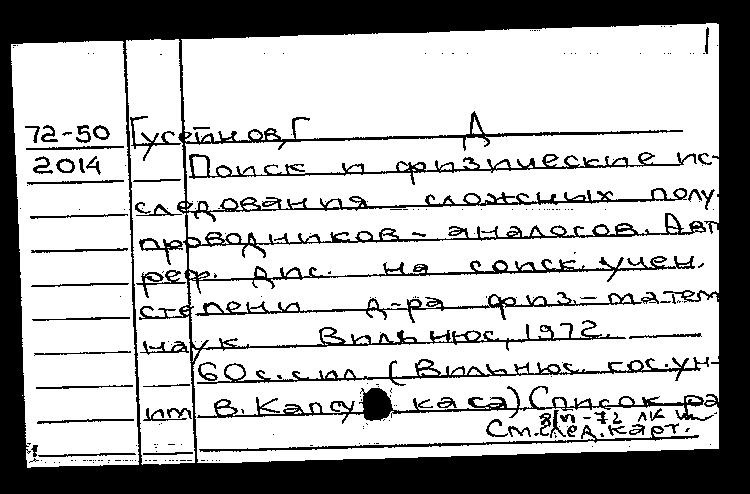 72-50 Гусейнов, Г Д
2014 Поиск и физические ис-
следования сложных полу-
проводников - аналогов. Авт
реф. дис. на соиск. учен.
степени д-ра физ.-матем
наук. Вильнюс, 1972.
60 с. с ил. (Вильнюс. гос. ун-
им В. Капсу каса) Список ра
См. след. карт.